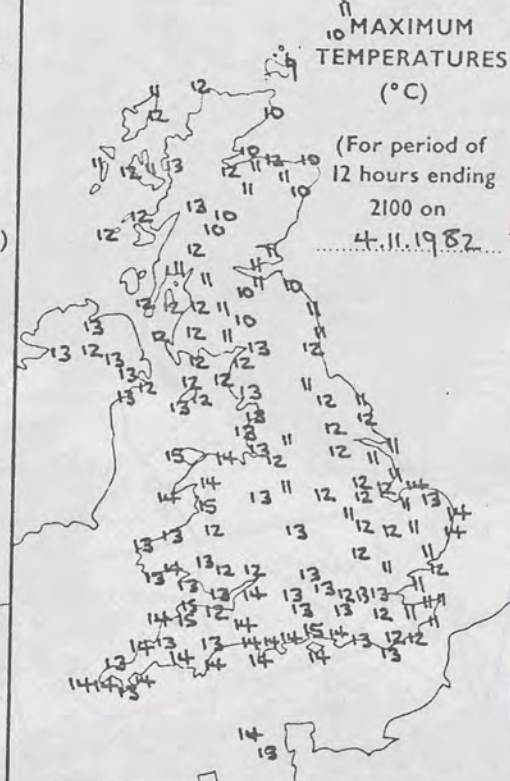 11
10 MAXIMUM
TEMPERATURES
(°C)
9
(For period of
12 hours ending
2100 on
4.11.1982
11 12
12 10
10
11 12 11 13 12 11 12 10
11 11 10
12 13 10
12 10
12 11
11 11 11
10 10
12 12 12 11 11
13 10
12 12 11 11
13 12 13 13 12
13 12
13 12 12 12 13 11 11
13 12 12
13 12
13 11 12 11
15 14 13 12 11
14 14 13 11 12 12 12 14 13
15 12 11 14
13 13 12 13 11 12 12 11 14
12 11
13 14 13 12 12 13 11 12
13 13 14 13 13 12 13 13 11
14 15 15 12 14 13 13 12 11 11 11
14 13 13 14 14 14 15 14 13 12 12
13 14 14 14 14 13
14 14 13 14
14
13
)